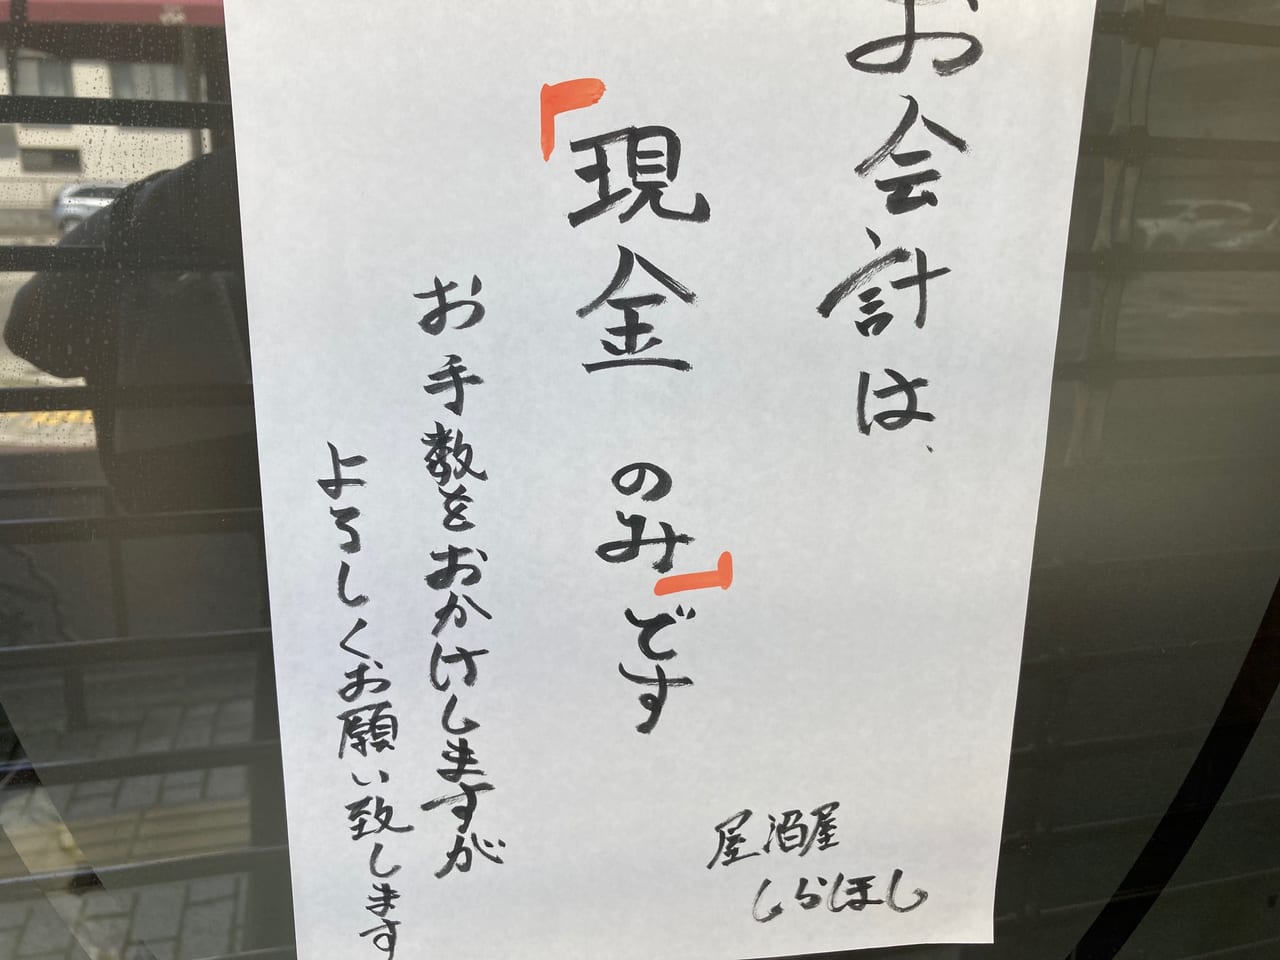 お会計は、
「現金のみ」です
お手数をおかけしますが
よろしくお願い致します
居酒屋
しらほし